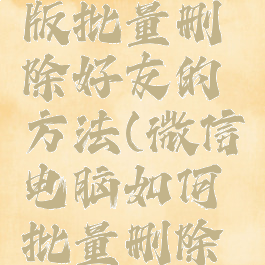 版批量删
除好友的
方法(微信
电脑如何
批量删除